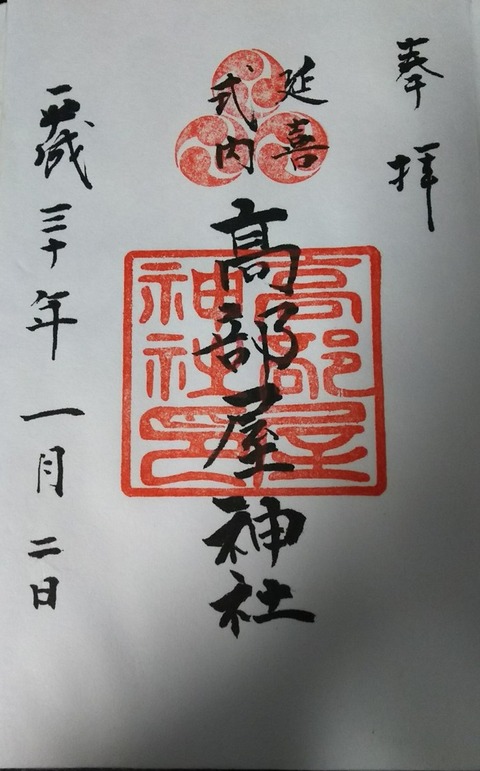 奉拝
延喜
式内
高部屋神社
高部屋
神社印
平成三十年一月二日